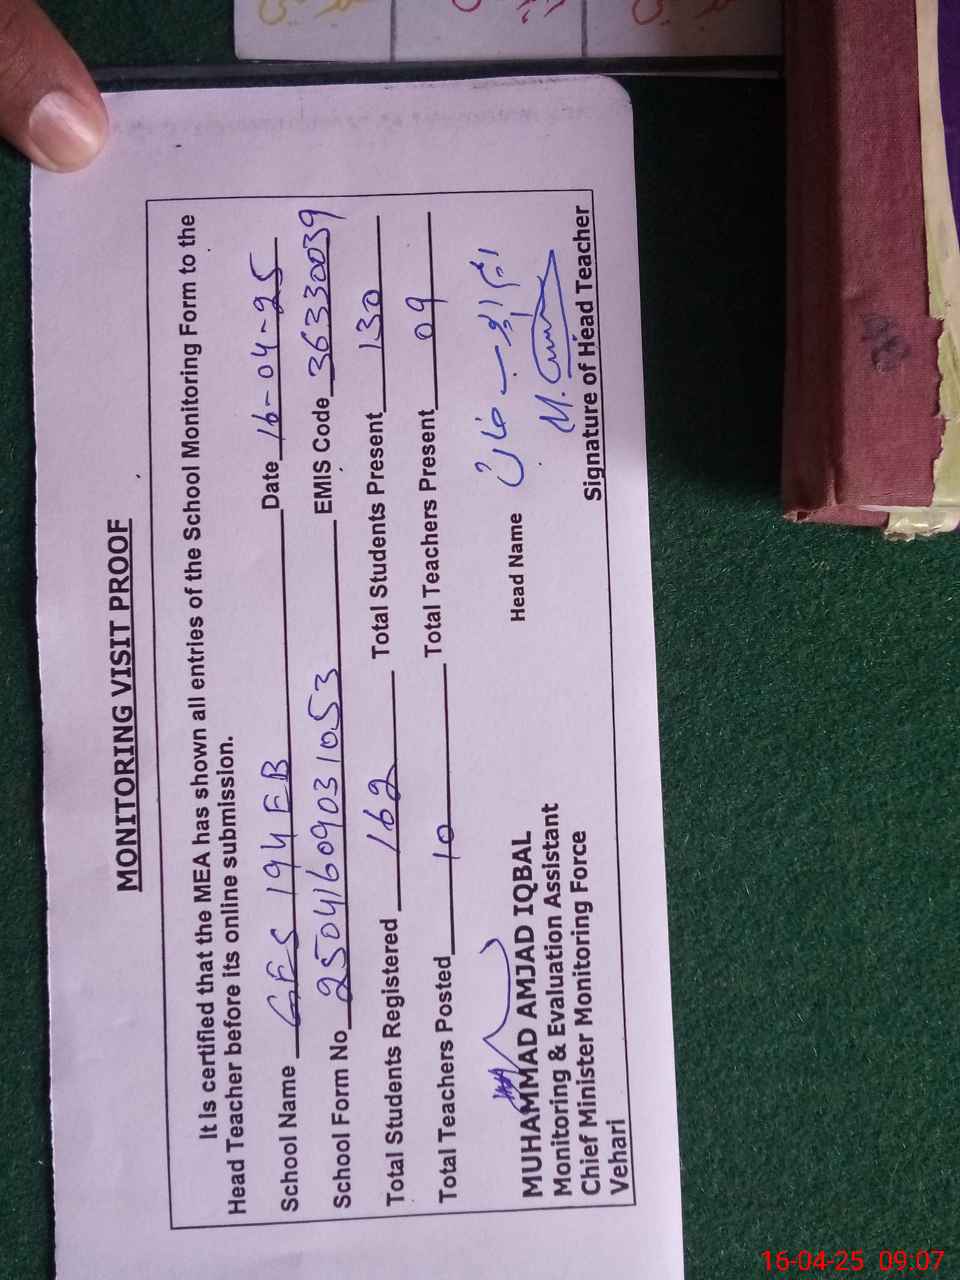 MONITORING VISIT PROOF
It Is certified that the MEA has shown all entries of the School Monitoring Form to the
Head Teacher before its online submission.
School Name GES 194 EB Date 16-04-25
School Form No 25041609031053 EMIS Code 36330039
Total Students Registered 162 Total Students Present 130
Total Teachers Posted 10 Total Teachers Present 09
Head Name
MUHAMMAD AMJAD IQBAL
Monitoring & Evaluation Assistant
Chief Minister Monitoring Force
Vehari
Signature of Head Teacher
16-04-25 09:07